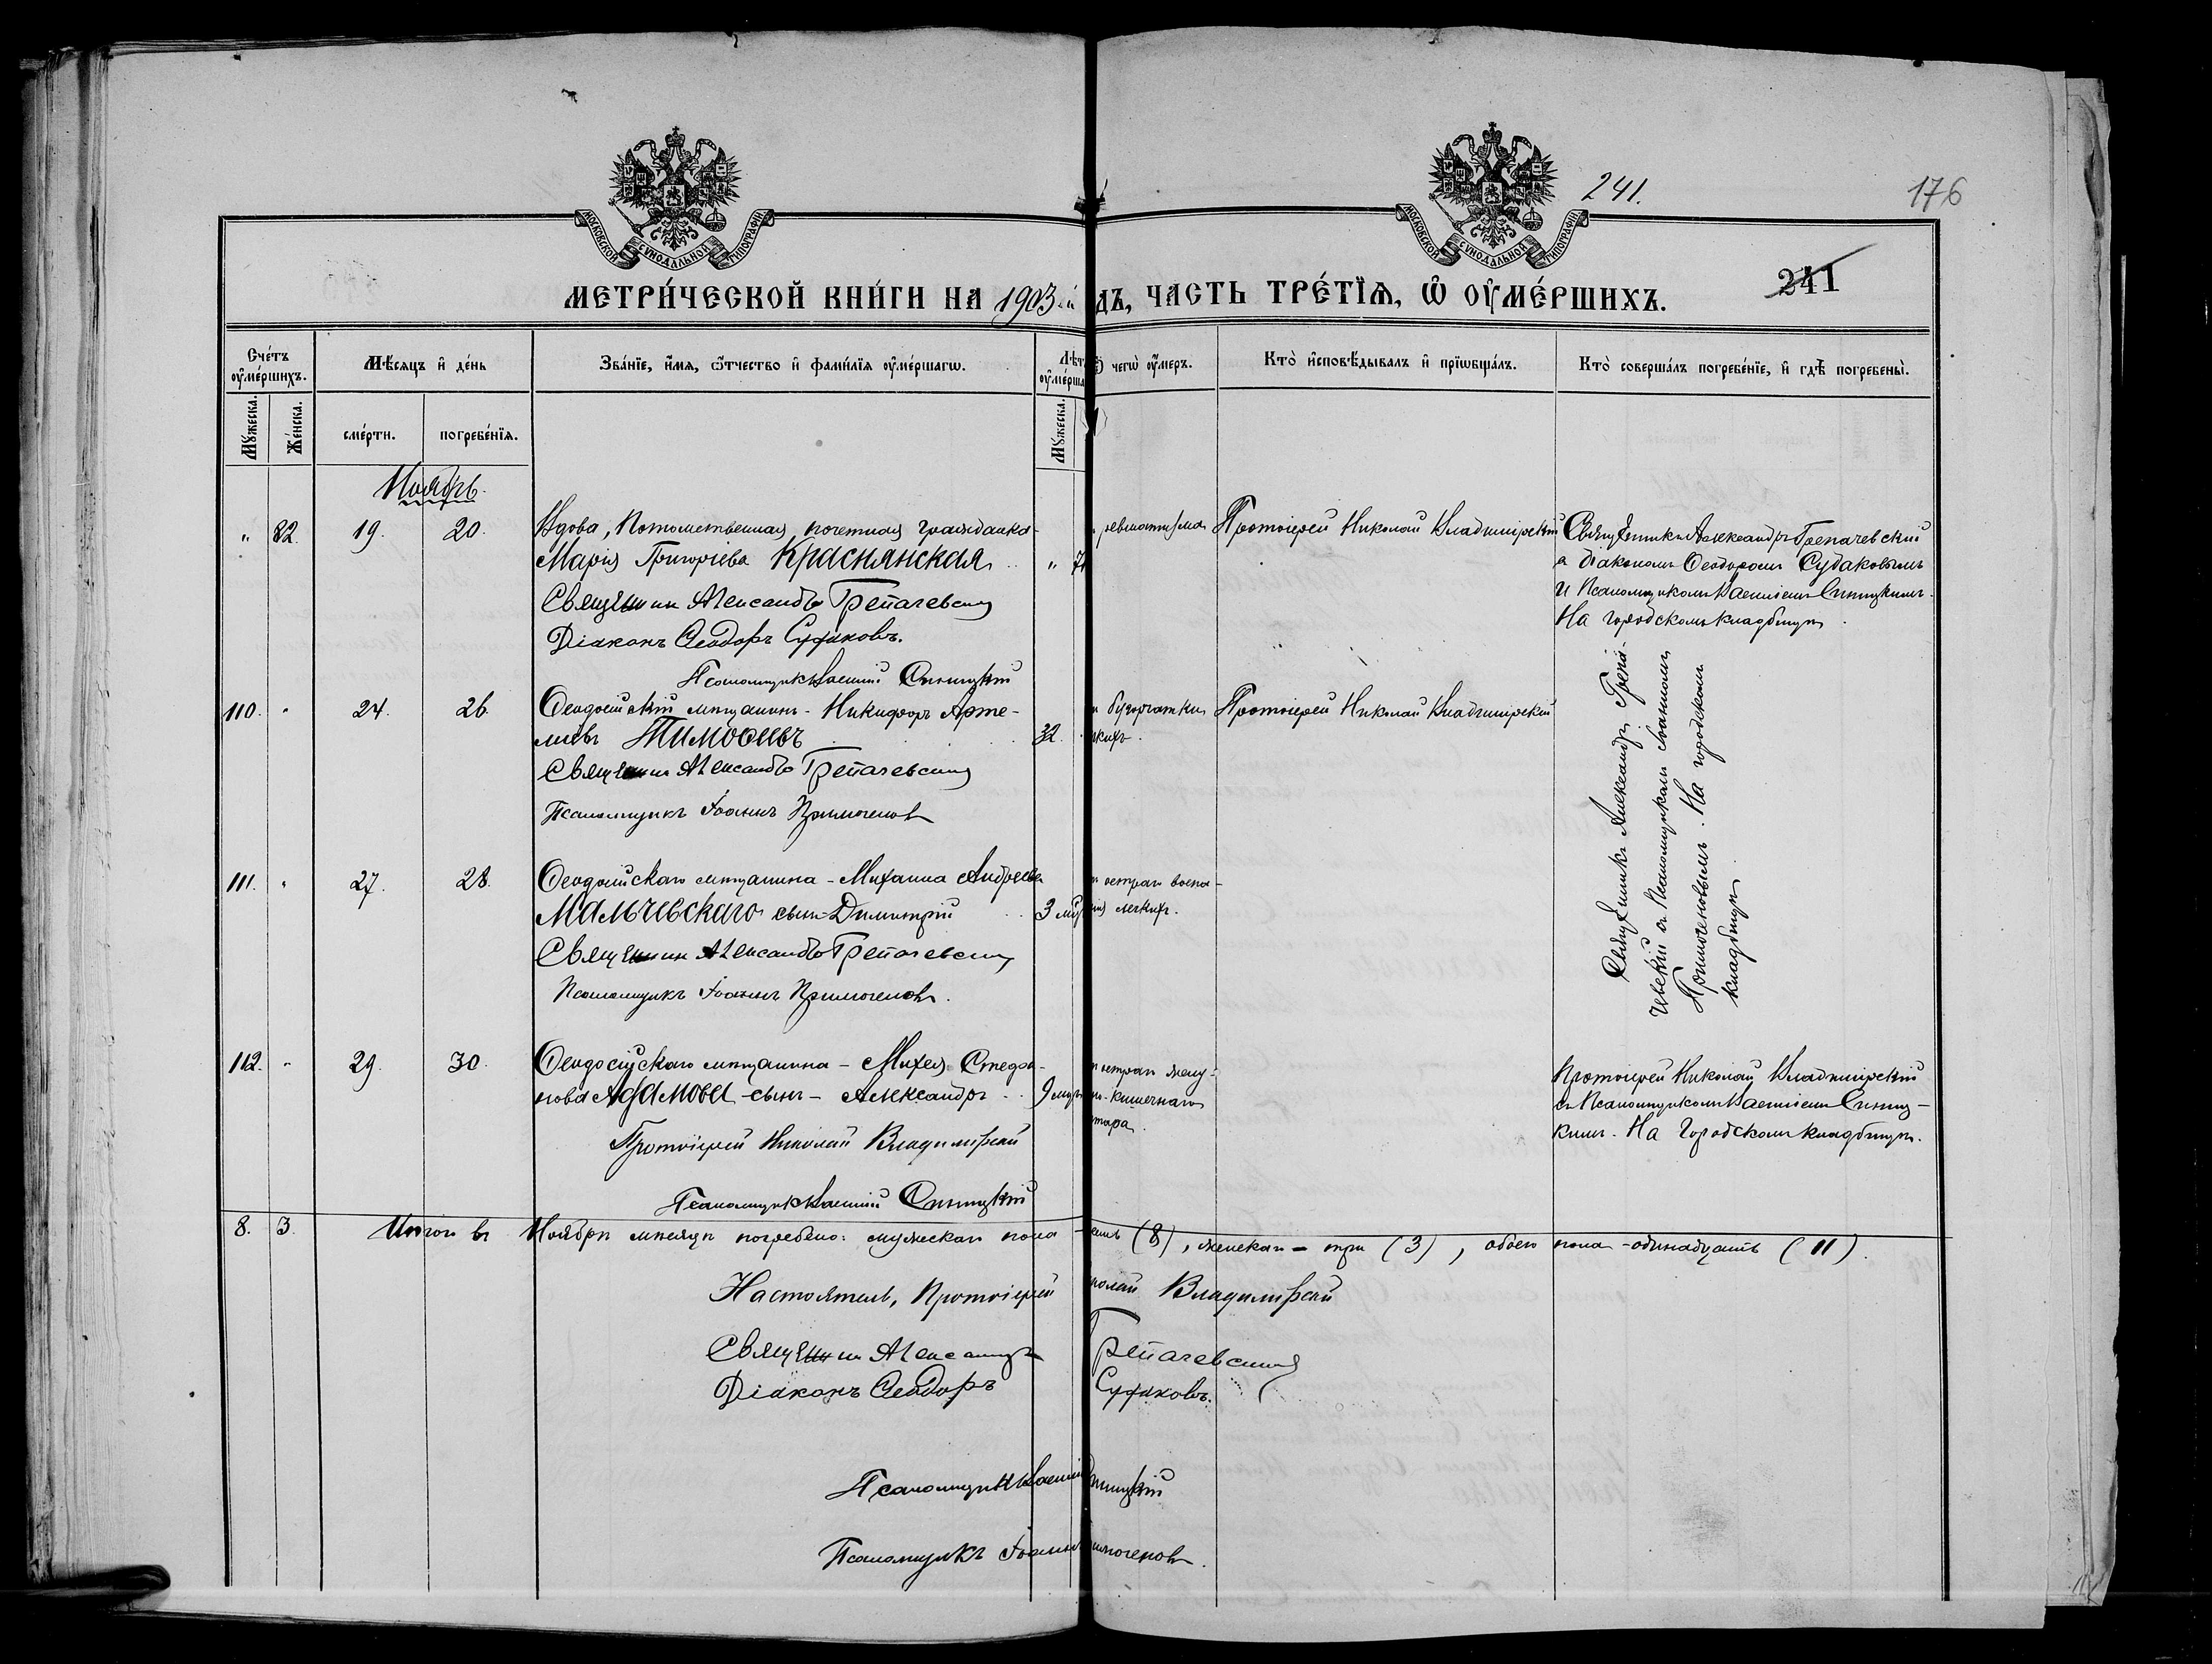 МОСКОВСКОЙ СУНОДАЛЬНОЙ ТИПОГРАФІИ
МОСКОВСКОЙ СУНОДАЛЬНОЙ ТИПОГРАФІИ
241.
176
МЕТРИ́ЧЕСКОЙ КНИ́ГИ НА 1903 й
дъ, ЧАСТЬ ТРЕ́ТЇѦ, Ѡ҆ ОУ҆МЕ́РШИХЪ.
241
Сче́тъ оу҆ме́ршихъ.
Мѣ́сяцъ и҆ де́нь
Зва́нїе, и҆́мя, ѻ҆́тчество и҆ фами́лїя оу҆ме́ршагѡ.
Лѣт
оу҆ме́рша
чегѡ̀ оу҆́меръ.
Кто̀ и҆сповѣ́дывалъ и҆ прїѡбща́лъ.
Кто̀ соверша́лъ погребе́нїе, и҆ гдѣ̀ погребены̀.
Мꙋ́жеска.
Же́нска.
сме́рти.
погребе́нїя.
Мꙋ́жеска.
Ноябрь.
" 82. 19. 20. Вдова, Потомственная почетная гражданка
Марія Григоріева Краснянская " 7
Священник Александръ Трепачевский
Діаконъ Ѳеодоръ Судаковъ.
Псаломщикъ Василій Синицкій
ревматизма
Протоіерей Николай Владимірскій
Священникъ Александръ Трепачевскій
съ діакономъ Ѳеодоромъ Судаковымъ
и Псаломщикомъ Василіемъ Синицкимъ.
На городскомъ кладбищѣ.
110. " 24. 26. Ѳеодосійскій мѣщанинъ - Никифоръ Арте-
міевъ Тимоѳеевъ 32.
Священник Александръ Трепачевский
Псаломщикъ Іоаннъ Примоченовъ
бугорчатки
кихъ.
Протоіерей Николай Владимірскій
Священникъ Александръ Трепа-
чевскій съ Псаломщикомъ Іоанномъ
Примоченовымъ. На городскомъ
кладбищѣ.
111. " 27. 28. Ѳеодосійскаго мѣщанина - Михаила Андреева
Мальчевскаго сынъ - Димитрій 3 мѣс
острагО воспа-
нія легкихъ.
Священник Александръ Трепачевский
Псаломщикъ Іоаннъ Примоченовъ.
112. " 29. 30. Ѳеодосійскаго мѣщанина - Михея Стефа-
нова Адамова - сынъ - Александръ 9 мѣс
Протоіерей Николай Владимірский
Псаломщикъ Василій Синицкій
остраго желу-
но-кишечнаго
тара.
Протоіерей Николай Владимірскій
съ Псаломщикомъ Василіемъ Синиц-
кимъ. На Городскомъ кладбищѣ.
8. 3. Итого въ Ноябрѣ мѣсяцѣ погребено: мужеска пола
емь (8), женска - три (3), обоего пола - одинадцать (11).
Настоятель, Протоіерей
колай Владимірский
Священник Александръ Трепачевский
Діаконъ Ѳеодоръ Судаковъ.
Псаломщикъ Василій
иницкій
Псаломщикъ Іоаннъ
имоченовъ.